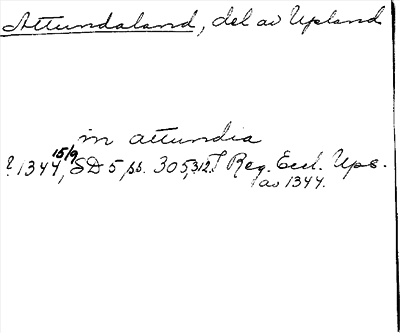 Attundaland, del av Upland
in attundia
? 1344 15/9, SD 5, ss. 305, 312. Reg. Eccl. Ups.
av 1344.